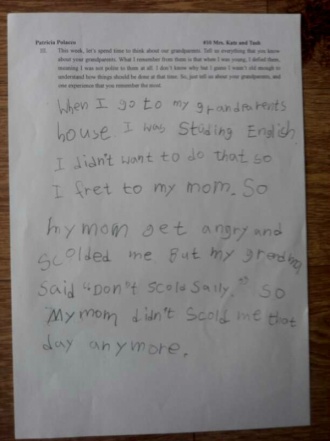 Patricia Polacco #10 Mrs. Katz and Tush
10. This week, let's spend time to think about our grandparents. Tell us everything that you know
about your grandparents. What I remember from them is that when I was young, I defied them,
meaning I was not polite to them at all. I don't know why but I guess I wasn't old enough to
understand how things should be done at that time. So, just tell us about your grandparents, and
one experience that you remember the most.
When I go to my grandparents
house I was Studing English.
I didn't want to do that so
I fret to my mom. So
my mom get angry and
scolded me But my grandma
said "Don't scold Sally." So
My mom didn't scold me that
day anymore.